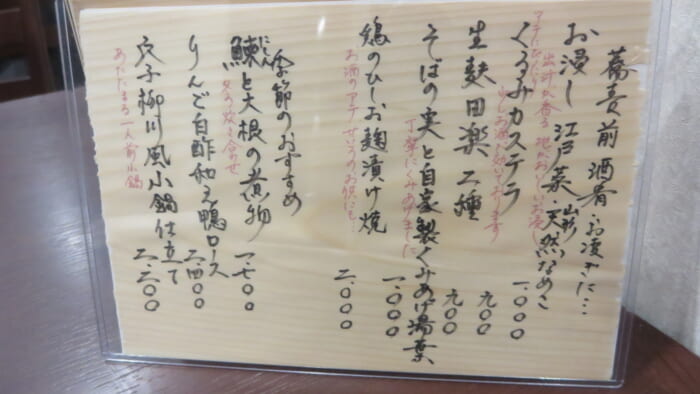 蕎麦前 酒肴・お凌ぎに…
お浸し 江戸菜・山形天然なめこ 一、〇〇〇
出汁が香る 地がおいしいお浸し
くるみカステラ 九〇〇
アテにもなる 少しお酒が効いております
生麩田楽 二種 九〇〇
そばの実と自家製くみあげ湯葉 一、〇〇〇
丁寧にくみあげました
鴨のひしお麹漬け焼 二、〇〇〇
お酒のアテ せいろのお供にも…
季節のおすすめ
鰊と大根の煮物 一、七〇〇
にしん
炊き合わせ
りんご白酢和え鴨ロース 二、四〇〇
穴子柳川風小鍋仕立て 二、二〇〇
あたたまる一人前小鍋